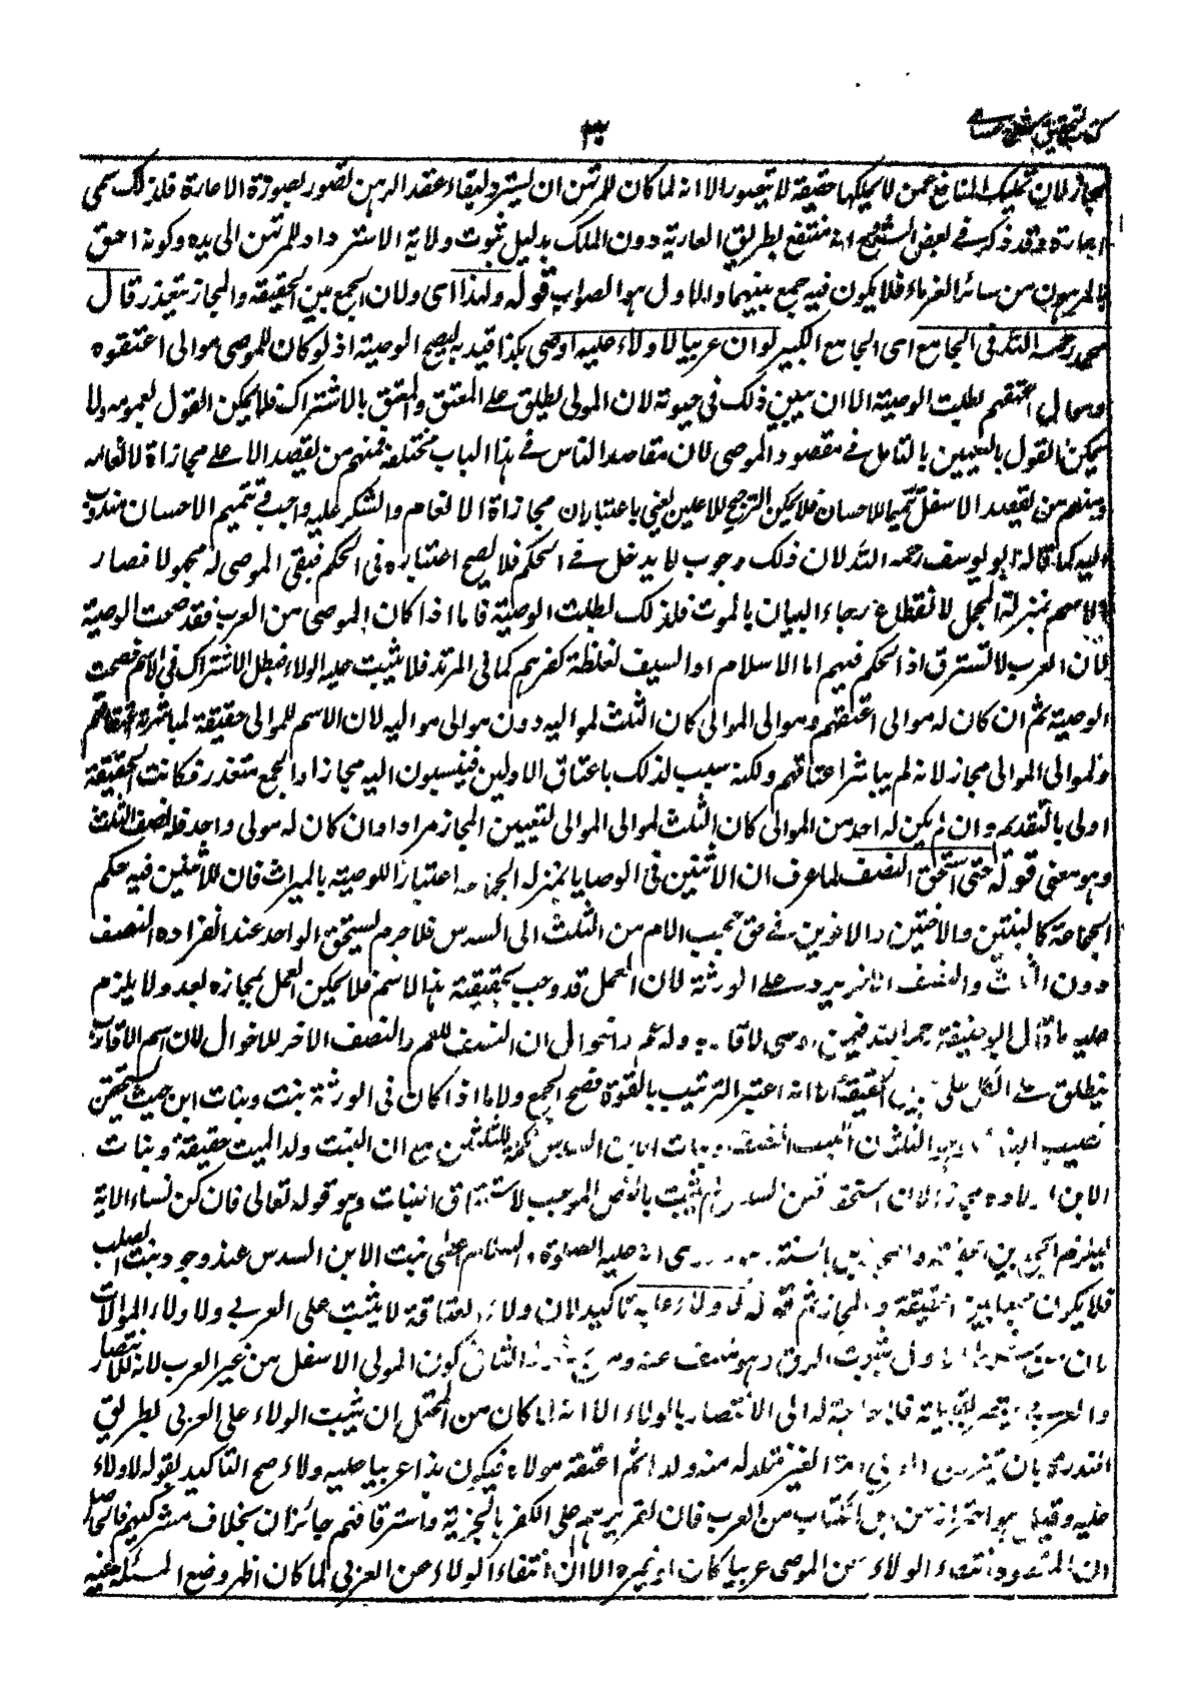 كتاب التحقيق شرح حسامي
٣٠
مجاز لان تمليك المنافع عمن لا يملكها حقيقة لا يتصور الا انه لما كان للمرتهن ان يسترد لبقاء عقد الرهن تصور بصورة الاعارة فلذلك سمى
اعارة وقد ذكر فى بعض الشروح انه منتفع بطريق العارية دون الملك بدليل ثبوت ولاية الاسترداد للمرتهن الى يده وكونه احق
بالمرهون من سائر الغرماء فلا يكون فيه جمع بينهما والاول هو الصواب قوله ولهذا اى ولان الجمع بين الحقيقة والمجاز متعذر قال
محمد رحمه الله فى الجامع اى الجامع الكبير لو ان عربيا لا ولاء عليه اوصى بكذا قيد به ليصح الوصية اذ لو كان للموصى موالى اعتقوه
وموالى اعتقهم بطلت الوصية الا ان يبين ذلك فى حيوته لان المولى يطلق على المعتق والمعتق بالاشتراك فلا يمكن القول بعمومه ولا
يمكن القول بالتعيين بالتامل فى مقصود الموصى لان مقاصد الناس فى هذا الباب مختلفة فمنهم من يقصد الاعلى مجازاة لانعامه
ومنهم من يقصد الاسفل تتميما للاحسان فلا يمكن الترجيح للاعلين يعنى باعتبار ان مجازاة الانعام والشكر عليه واجب وتتميم الاحسان مندوب
اليه كما قاله ابو يوسف رحمه الله لان ذلك وجوب لا يدخل فى الحكم فلا يصح اعتباره فى الحكم فبقى الموصى له مجهولا فصار
الاسم بمنزلة المجمل لانقطاع رجاء البيان بالموت فلذلك بطلت الوصية فاما اذا كان الموصى من العرب فقد صحت الوصية
لان العرب لا تسترق اذ الحكم فيهم اما الاسلام او السيف لغلظة كفرهم كما فى المرتد فلا يثبت عليه الولاء فبطل الاشتراك فى الاسم فصحت
الوصية ثم ان كان له موالى اعتقهم وموالى الموالى كان الثلث لمواليه دون موالى مواليه لان الاسم للموالى حقيقة لمباشرة اعتاقهم
ولموالى الموالى مجاز لانه لم يباشر اعتاقهم ولكنه سبب لذلك باعتاق الاولين فينسبون اليه مجازا والجمع متعذر فكانت الحقيقة
اولى بالتقديم وان لم يكن له احد من الموالى كان الثلث لموالى الموالى لتعيين المجاز مرادا وان كان له مولى واحد فله نصف الثلث
وهو معنى قوله حتى استحق النصف لما عرف ان الاثنين فى الوصايا بمنزلة الجماعة اعتبارا للوصية بالميراث فان للاثنين فيه حكم
الجماعة كالبنتين والاختين والاخوين فى حق حجب الام من الثلث الى السدس فلا جرم يستحق الواحد عند انفراده النصف
دون الثلث والنصف الاخر يرد على الورثة لان العمل قد وجب بحقيقة هذا الاسم فلا يمكن العمل بمجازه بعد ولا يلزم
عليه ما قال ابو حنيفة رحمه الله فيمن اوصى لاقاربه وله عم واخوال ان النصف للعم والنصف الاخر للاخوال لان اسم الاقارب
ينطلق على الكل على الحقيقة الا انه اعتبر الترتيب بالقوة فصح الجمع ولا ما اذا كان فى الورثة بنت وبنات ابن حيث يتحقق
نصيب البنات وهو الثلثان للبنت النصف وبنات الابن السدس تكملة للثلثين مع ان البنت ولد الميت حقيقة وبنات
الابن اولاده مجازا لان استحقاقهن السدس لم يثبت بالنص الموجب لاستحقاق البنات وهو قوله تعالى فان كن نساء الاية
ليلزم الجمع بين الحقيقة والمجاز بل بالسنة روى انه عليه الصلوة والسلام اعطى بنت الابن السدس عند وجود بنت الصلب
فلا يكون جمعا بين الحقيقة والمجاز ثم قوله لا ولاء عليه تاكيد لان ولاء العتاقة لا يثبت على العربى ولا ولاء الموالات
الاول ثبوت الرق وهو منتف عنه ومن الثانى كون المولى الاسفل من غير العرب لانه للانتصار
فلا حاجة له الى الانتصار بالولاء الا انه لما كان من المحتمل ان يثبت الولاء على العربى بطريق
الندرة بان تزوج امة الغير فتلد له منه ولدا ثم اعتقه مولاه فيكون هذا عربيا عليه ولاء صح التاكيد بقوله لا ولاء
عليه وقيل هو احتراز عن اهل الكتاب من العرب فان تقريرهم على الكفر بالجزية واسترقاقهم جائزان بخلاف مشركيهم فالحاصل
ان المقصود انتفاء الولاء عن الموصى عربيا كان او غيره الا ان انتفاء الولاء عن العربى لما كان اظهر وضع المسئلة فيه